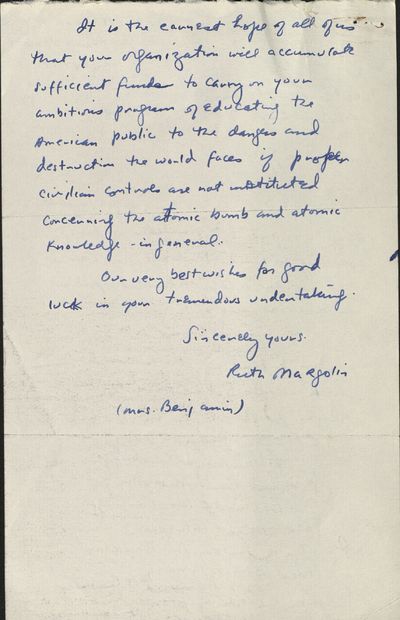 It is the earnest hope of all of us
that your organization will accumulate
sufficient funds to carry on your
ambitious program of educating the
American public to the dangers and
destruction the world faces if proper
civilian controls are not instituted
concerning the atomic bomb and atomic
knowledge - in general.
Our very best wishes for good
luck in your tremendous undertaking.
Sincerely yours.
Ruth Margolin
(Mrs. Benjamin)